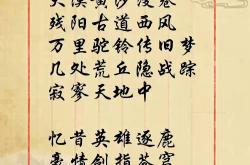 大漠黄沙漫卷
残阳古道西风
万里驼铃传旧梦
几处荒丘隐战踪
寂寥天地中
忆昔英雄逐鹿
豪情剑指苍穹